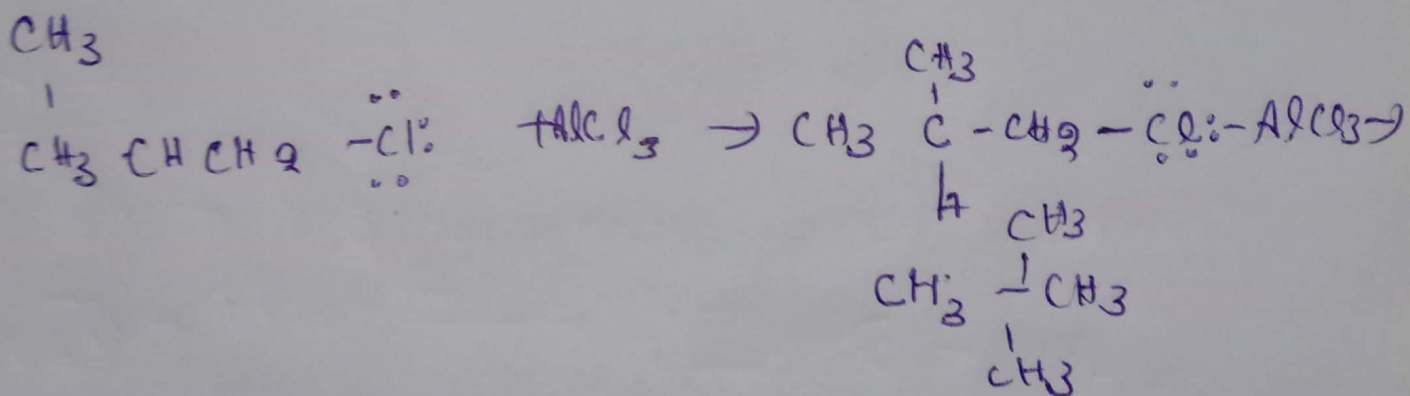 CH3
CH3 CH CH2 -Cl: +AlCl3 → CH3 C - CH2 - Cl: - AlCl3 →
CH3
H
CH3
CH3 - CH3
CH3